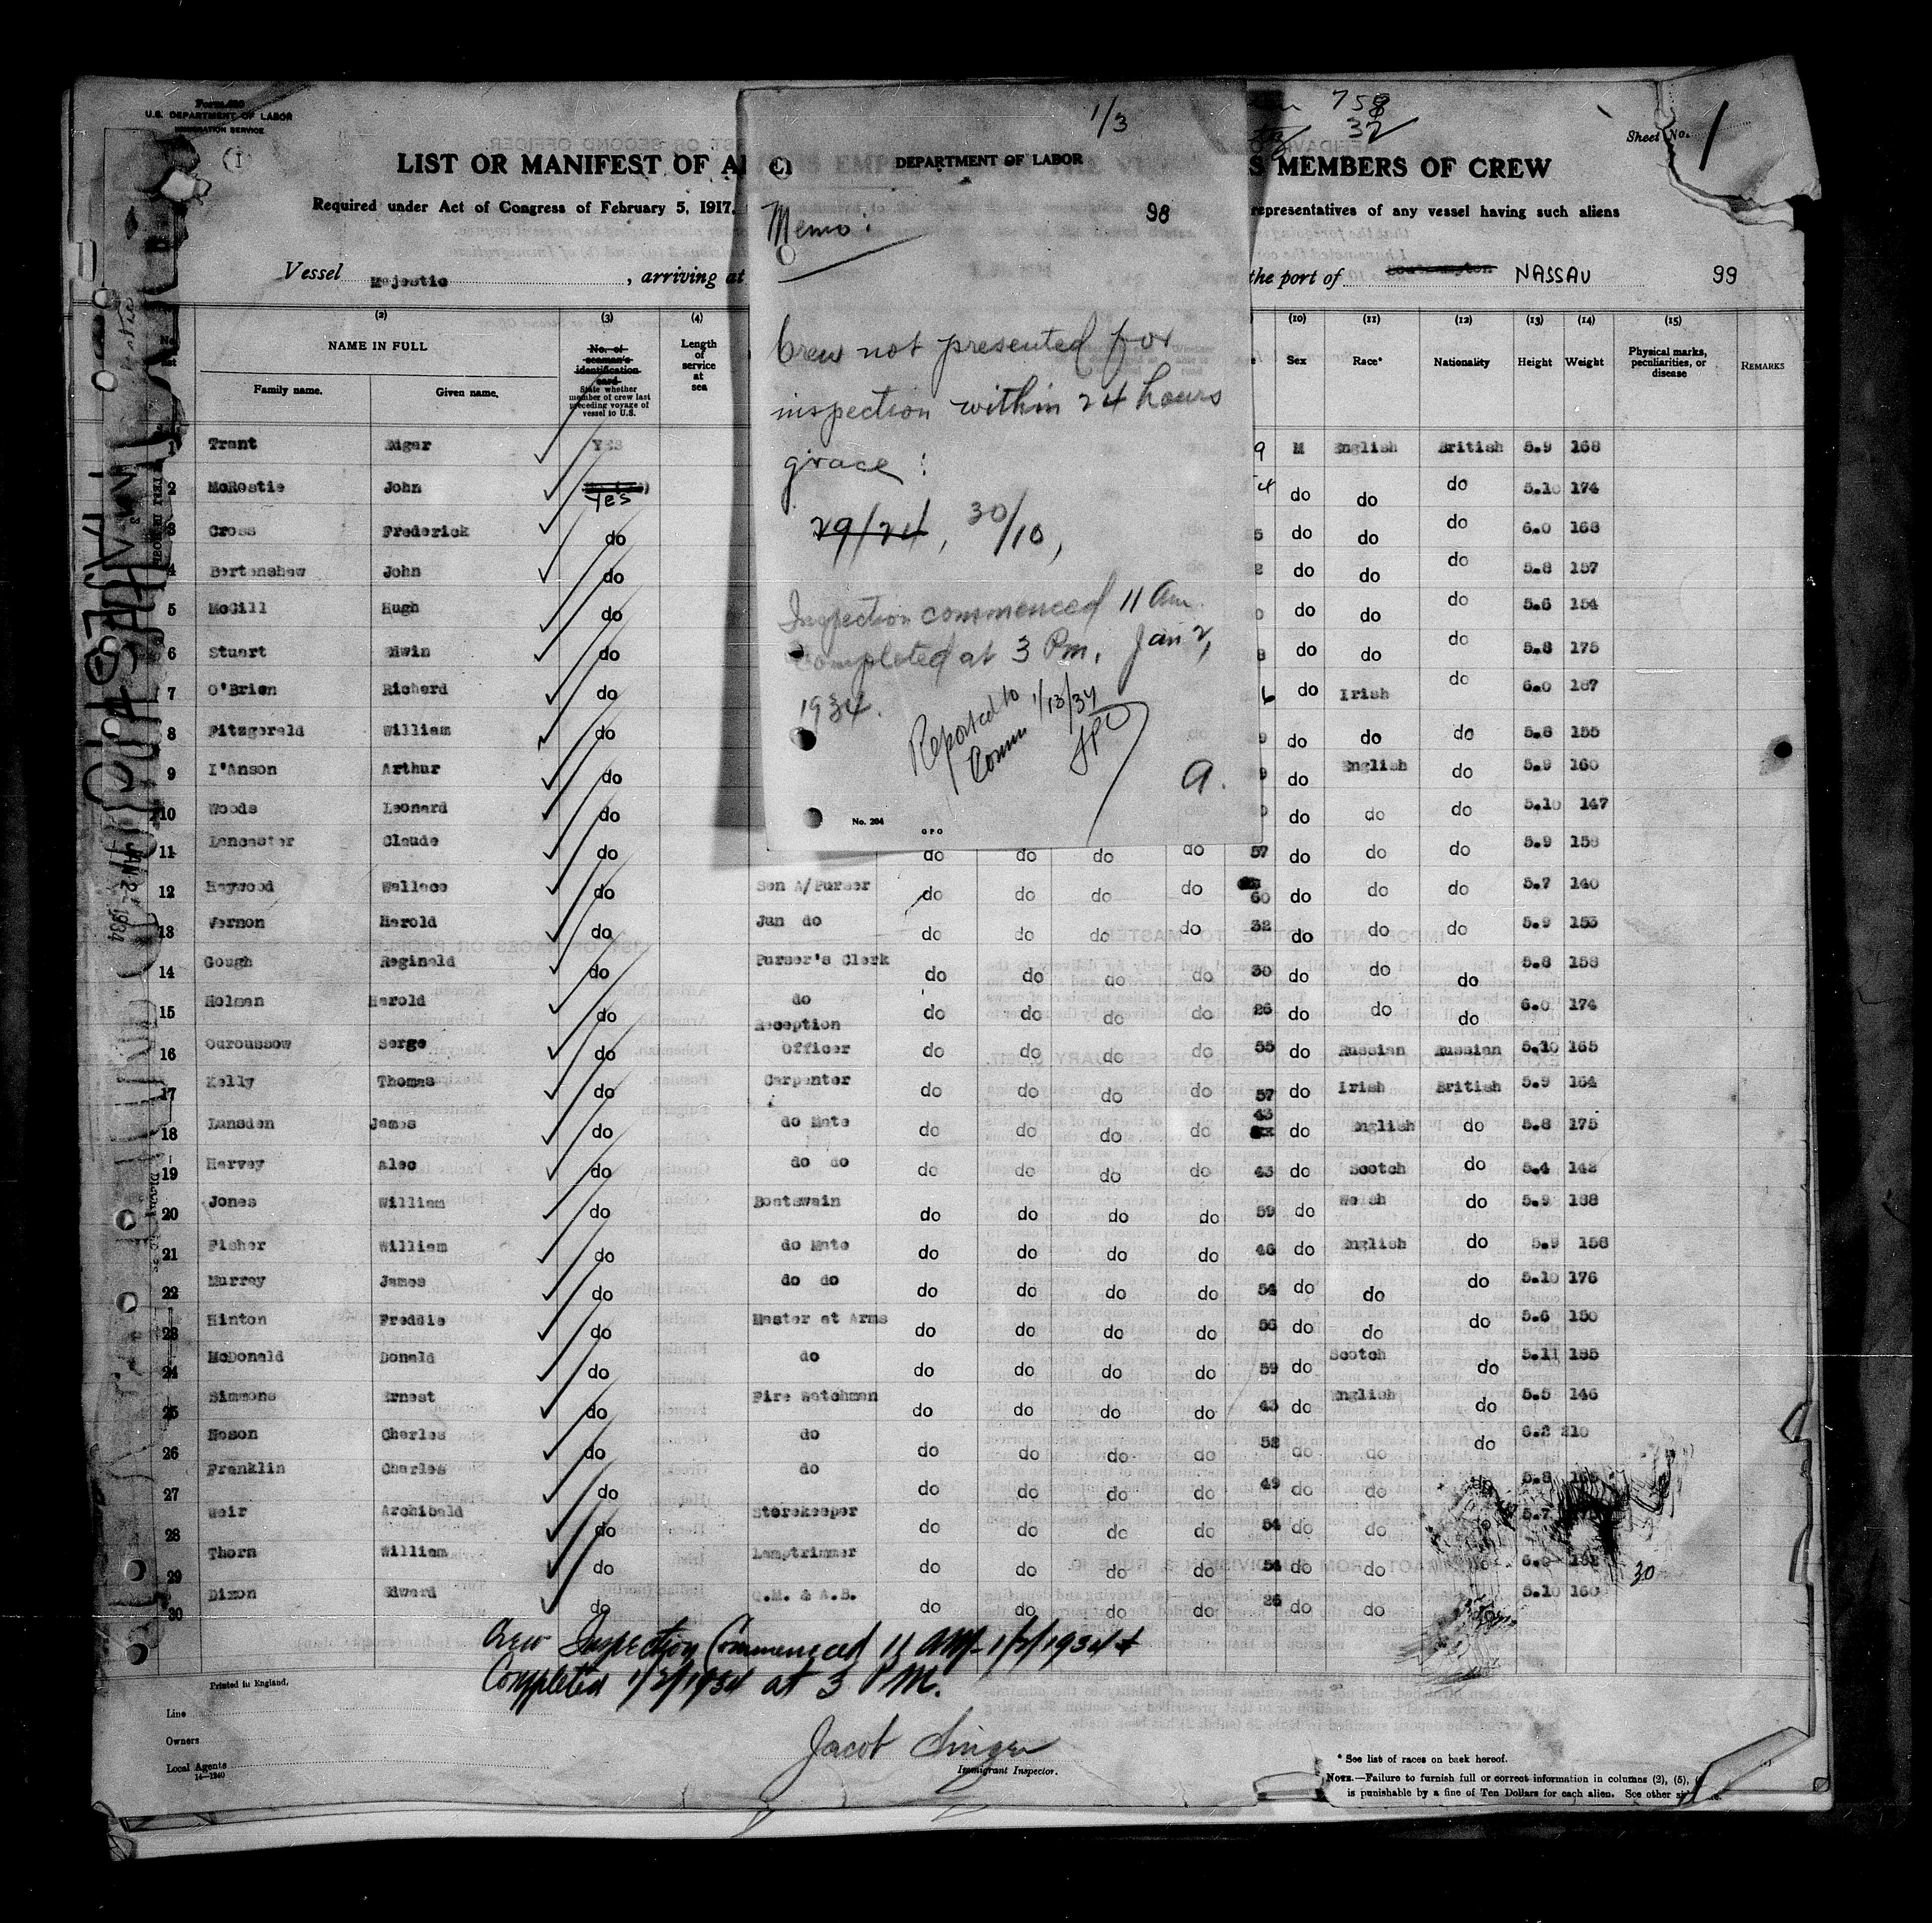 Form 680
U.S. DEPARTMENT OF LABOR
IMMIGRATION SERVICE
1/3
758
32
Sheet No. 1
LIST OR MANIFEST OF AL
DEPARTMENT OF LABOR
S MEMBERS OF CREW
Required under Act of Congress of February 5, 1917,
98
representatives of any vessel having such aliens
Memo:
Vessel Majestic, arriving at
the port of NASSAU 99
Crew not presented for
inspection within 24 hours
grace:
29/24, 30/10,
Inspection commenced 11 am.
Completed at 3 Pm. Jan 2,
1934.
Reported to
Comm 1/13/34
a.
No. 204
GPO
(2) (3) (4) (10) (11) (12) (13) (14) (15)
NAME IN FULL
Family name. Given name.
No. of seaman's identification card
State whether member of crew last preceding voyage of vessel to U.S.
Length of service at sea
Sex Race* Nationality Height Weight Physical marks, peculiarities, or disease REMARKS
1 Trant Edgar YES 9 M English British 5.9 168
2 McRostie John Yes do do do 5.10 174
3 Cross Frederick do 5 do do do 6.0 168
4 Bertenshaw John do 2 do do do 5.8 157
5 McGill Hugh do 0 do do do 5.6 154
6 Stuart Edwin do 8 do do do 5.8 175
7 O'Brien Richard do 6 do Irish do 6.0 187
8 Fitzgerald William do 9 do do do 5.8 155
9 I'Anson Arthur do 9 do English do 5.9 160
10 Woods Leonard do 0 do do do 5.10 147
11 Lancaster Claude do do do do do 57 do do do 5.9 158
12 Haywood Wallace do Sen A/Purser do do do do 60 do do do 5.7 140
13 Vernon Harold do Jun do do do do do 32 do do do 5.9 153
14 Gough Reginald do Purser's Clerk do do do do 30 do do do 5.8 158
15 Holman Harold do do do do do do 26 do do do 6.0 174
16 Ouroussow Serge do Reception Officer do do do do 55 do Russian Russian 5.10 165
17 Kelly Thomas do Carpenter do do do do 57 do Irish British 5.9 164
18 Lansden James do do Mate do do do do 43 do English do 5.8 175
19 Harvey Alec do do do do do do do 43 do Scotch do 5.4 142
20 Jones William do Boatswain do do do do 59 do Welsh do 5.9 188
21 Fisher William do do Mate do do do do 46 do English do 5.9 158
22 Murray James do do do do do do do 54 do do do 5.10 176
23 Hinton Freddie do Master at Arms do do do do 56 do do do 5.6 150
24 McDonald Donald do do do do do do 59 do Scotch do 5.11 195
25 Simmons Ernest do Fire Watchman do do do do 43 do English do 5.5 146
26 Nason Charles do do do do do do 52 do do do 6.2 210
27 Franklin Charles do do do do do do 49 do do do 5.8
28 Weir Archibald do Storekeeper do do do do 54 do do 5.7
29 Thorn William do Lamptrimmer do do do do 54 do do do 6.0 182
30
30 Dixon Edward do Q.M. & A.B. do do do do 26 do do do 5.10 160
Crew Inspection Commenced 11 AM - 1/2/1934 +
Completed 1/2/1934 at 3 PM.
Printed in England.
Line
Owners
Local Agents
14—1240
Jacob Singer
Immigrant Inspector.
* See list of races on back hereof.
NOTE.—Failure to furnish full or correct information in columns (2), (5),
is punishable by a fine of Ten Dollars for each alien. See other